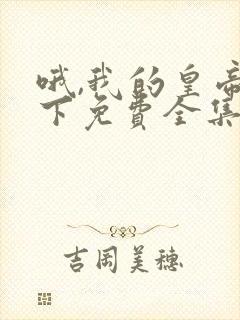 哦,我的皇帝
下免费全集
吉冈美穗